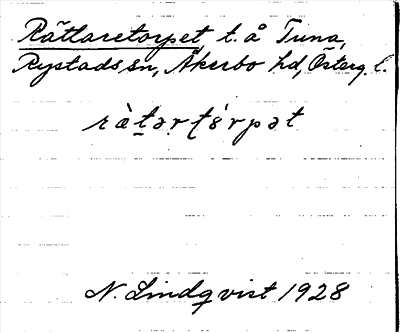 Rättaretorpet t. å Tuna,
Rystads sn, Åkerbo hd, Österg. l.
N. Lindqvist 1928